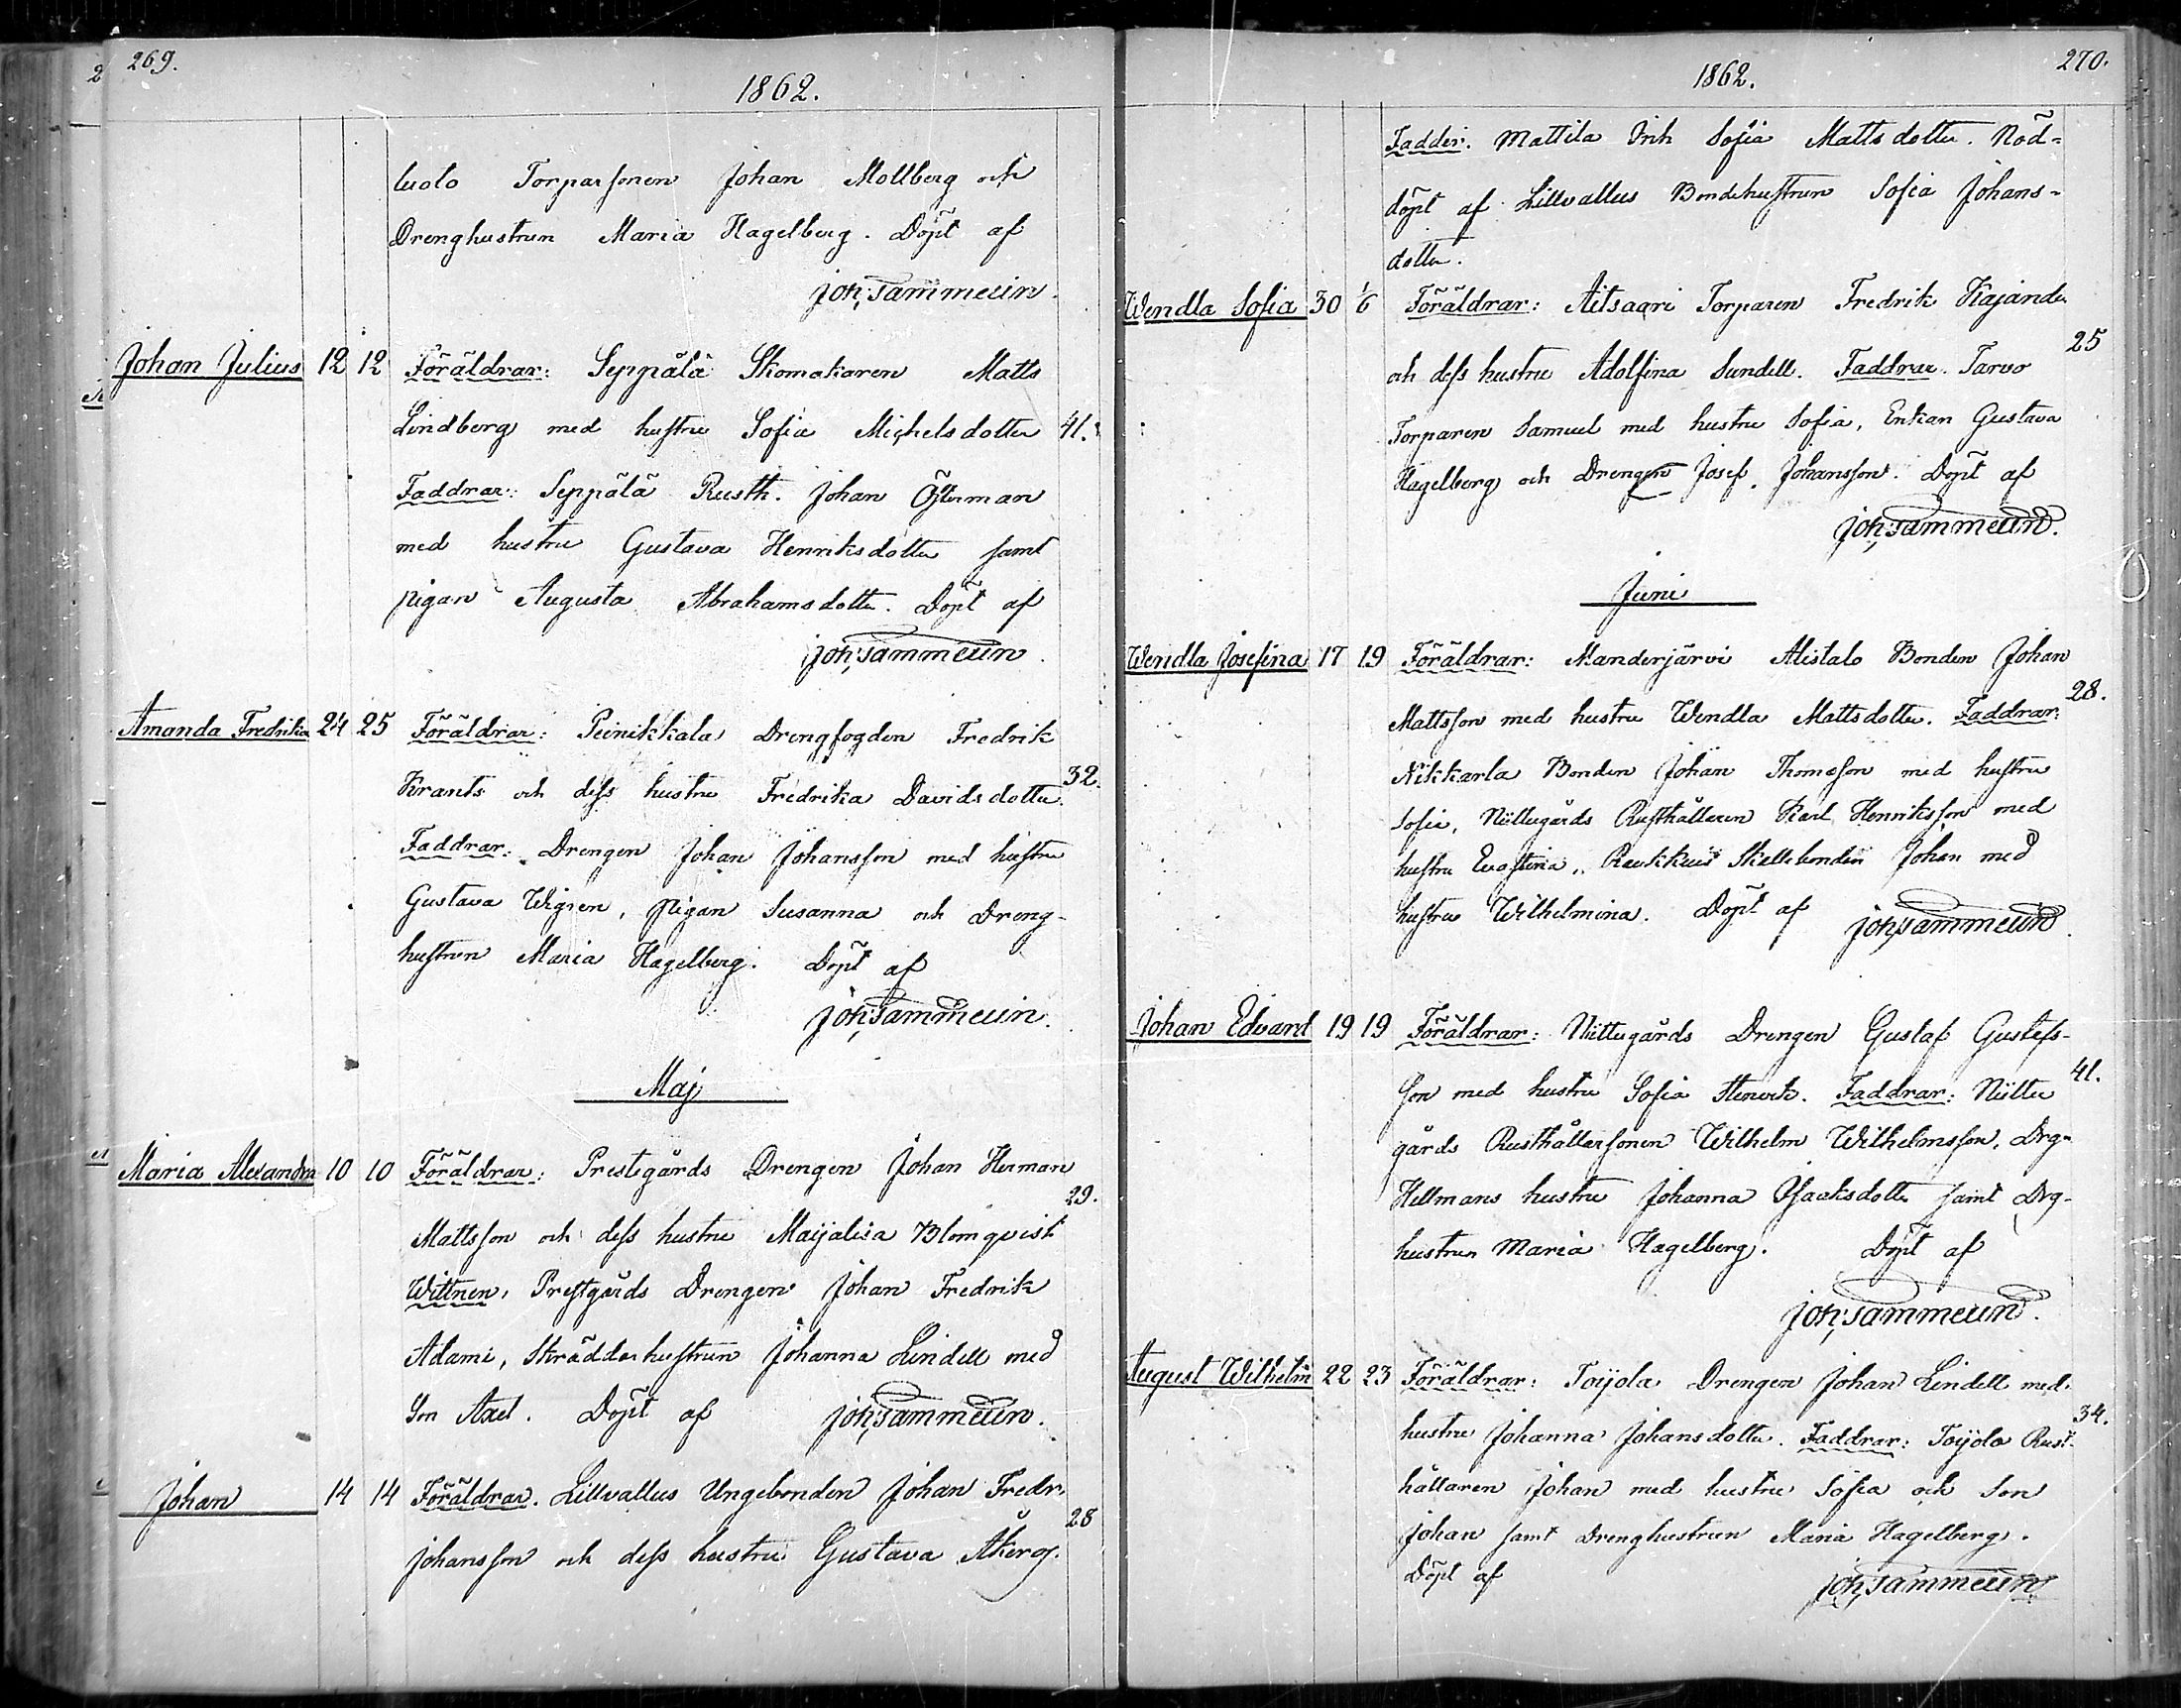 269.
1862.
luolo Torparsonen Johan Mollberg och
Drenghustrun Maria Hagelberg. Döpt af
Joh; Sammelin.
Johan Julius 12 12 Föräldrar: Seppälä Skomakaren Matts
Lindberg med hustru Sofia Michelsdotter 41.
Faddrar: Seppälä Rusth. Johan Österman
med hustru Gustava Henriksdotter samt
pigan Augusta Abrahamsdotter. Döpt af
Joh; Sammelin.
Amanda Fredrika 24 25 Föräldrar: Peinikkala Drengfogden Fredrik
Krants och dess hustru Fredrika Davidsdotter. 32.
Faddrar: Drengen Johan Johansson med hustru
Gustava Wigren, pigan Susanna och Dreng-
hustrun Maria Hagelberg. Döpt af
Joh; Sammelin.
Maj
Maria Alexandra 10 10 Föräldrar: Prestegårds Drengen Johan Herman
29.
Mattsson och dess hustru Maijalisa Blomqvist
Wittnen, Prestgårds Drengen Johan Fredrik
Adami, Skräddarhustrun Johanna Lindell med
Son Axel. Döpt af Joh; Sammelin.
Johan 14 14 Föräldrar. Lillvallus Ungebonden Johan Fredr.
28
Johansson och dess hustru Gustava Åkerog.
270.
1862.
Fadder. Mattila Inh Sofia Mattsdotter. Nöd-
döpt af Lillvallus Bondehustrun Sofia Johans-
dotter.
Wendla Sofia 30 1/6 Föräldrar: Aitsaari Torparen Fredrik Kajander
25
och dess hustru Adolfina Sundell. Faddrar. Tarvo
Torparen Samuel med hustru Sofia, Enkan Gustava
Hagelberg och Drengen Josef Johansson. Döpt af
Joh; Sammelin.
Juni
Wendla Josefina 17 19 Föräldrar: Manderjärvi Alistalo Bonden Johan
28.
Mattsson med hustru Wendla Mattsdotter. Faddrar:
Nikkarla Bonden Johan Thomasson med hustru
Sofia, Niittugårds Rusthållaren Karl Henriksson med
hustru Evastina, Skattebonden Johan med
hustru Wilhelmina. Döpt af Joh; Sammelin.
Johan Edvard 19 19 Föräldrar: Niittugårds Drengen Gustaf Gustafs-
41.
son med hustru Sofia Faddrar: Niittu
gårds Rusthållarsonen Wilhelm Wilhelmsson, Drg-
Hellmans hustru Johanna Isaaksdotter samt Drg-
hustrun Maria Hagelberg. Döpt af
Joh; Sammelin.
August Wilhelm 22 23 Föräldrar: Toijola Drengen Johan Lindell med
34.
hustru Johanna Johansdotter. Faddrar: Toijola Rust-
hållaren Johan med hustru Sofia och Son
Johan samt Drenghustrun Maria Hagelberg.
Döpt af Joh; Sammelin